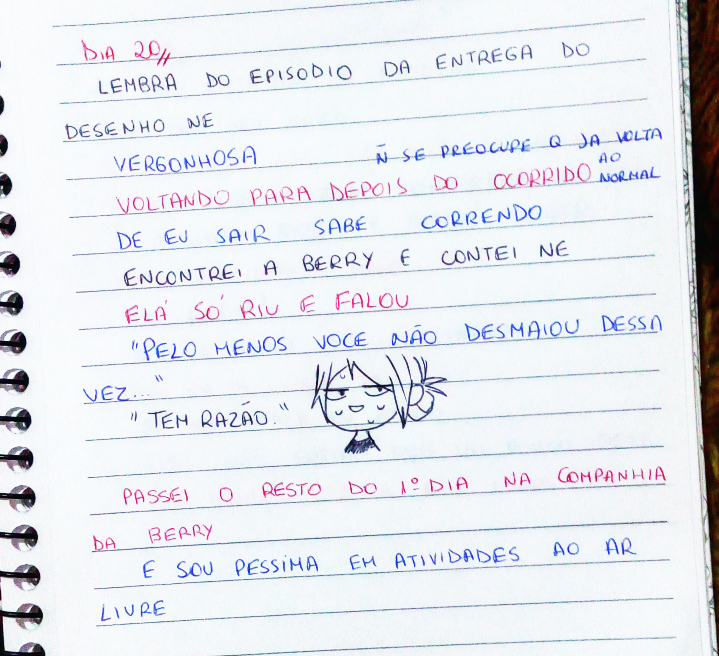 DIA 20//
LEMBRA DO EPISODIO DA ENTREGA DO
DESENHO NE
VERGONHOSA
Ñ SE PREOCUPE Q JA VOLTA
AO
NORMAL
VOLTANDO PARA DEPOIS DO OCORRIDO
DE EU SAIR SABE CORRENDO
ENCONTREI A BERRY E CONTEI NE
ELA SÓ RIU E FALOU
"PELO MENOS VOCE NÃO DESMAIOU DESSA
VEZ..."
"TEM RAZÃO."
PASSEI O RESTO DO 1º DIA NA COMPANHIA
DA BERRY
E SOU PESSIMA EM ATIVIDADES AO AR
LIVRE